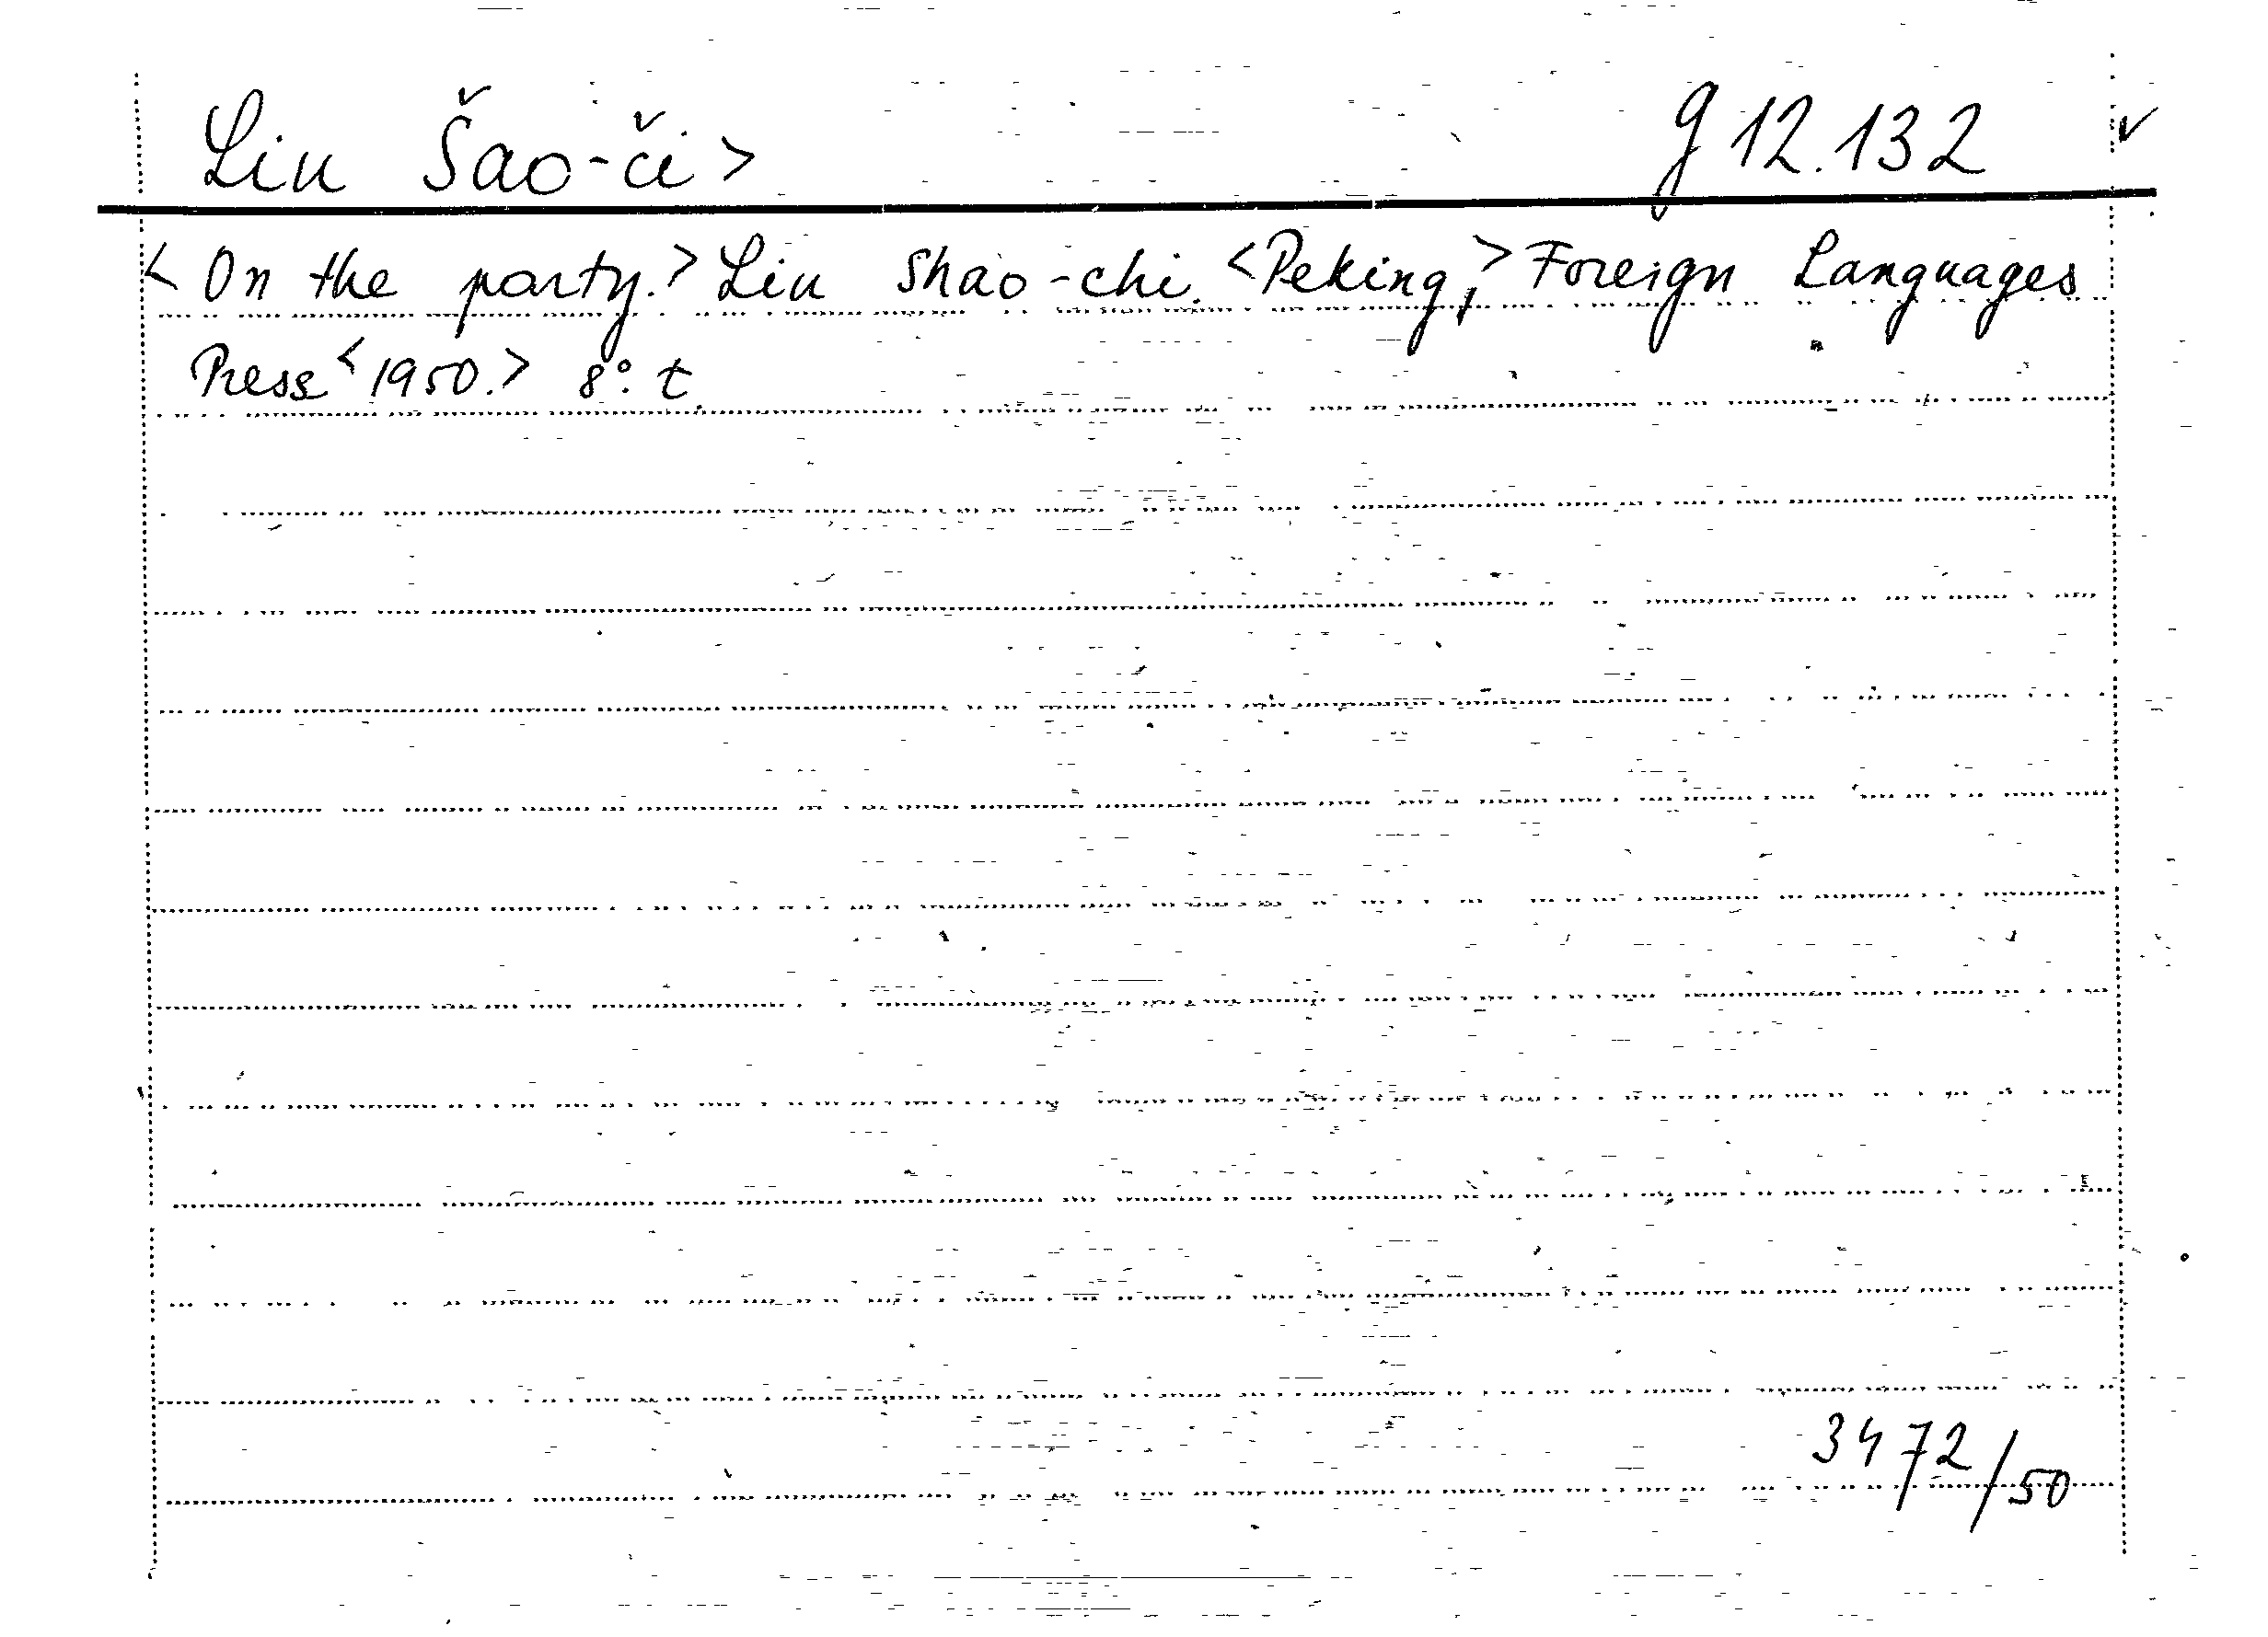 Liu Šao-či > g 12.132 ✓
< On the party. > Liu Shao-chi. < Peking, > Foreign Languages
Press < 1950. > 8°. t.
3472/50